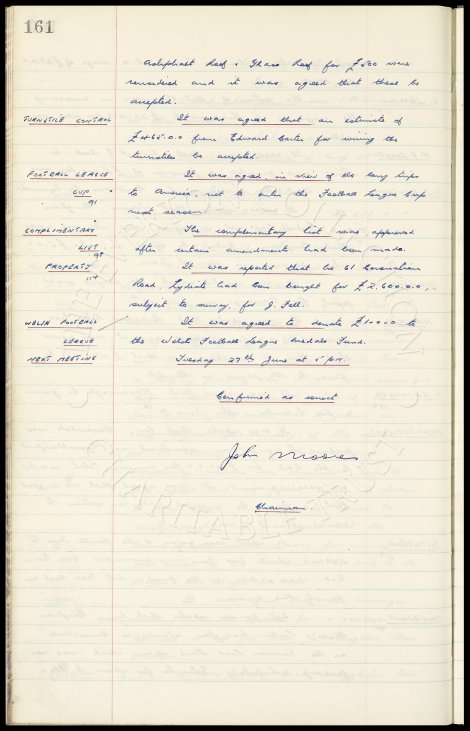 161
Asbphalt Roof & Glass Roof for £530 were
considered and it was agreed that these be
accepted.
TURNSTILE CONTROL It was agreed that an estimate of
£4465.0.0 from Edward Carter for wiring the
turnstiles be accepted.
FOOTBALL LEAGUE It was agreed, in view of the long trip
CUP to America, not to enter the Football League Cup
91 next season.
COMPLIMENTARY The complimentary list was approved
LIST after certain amendments had been made.
98
PROPERTY It was reported that the 61 Coronation
114 Road, Lydiate had been bought for £2,600.0.0,
subject to survey, for J. Fell.
WELSH FOOTBALL It was agreed to donate £10.0.0 to
LEAGUE the Welsh Football League medals Fund.
NEXT MEETING Tuesday 27th June at 5 pm.
Confirmed as correct
John Moores
Chairman.
CHARITABLE TRUST